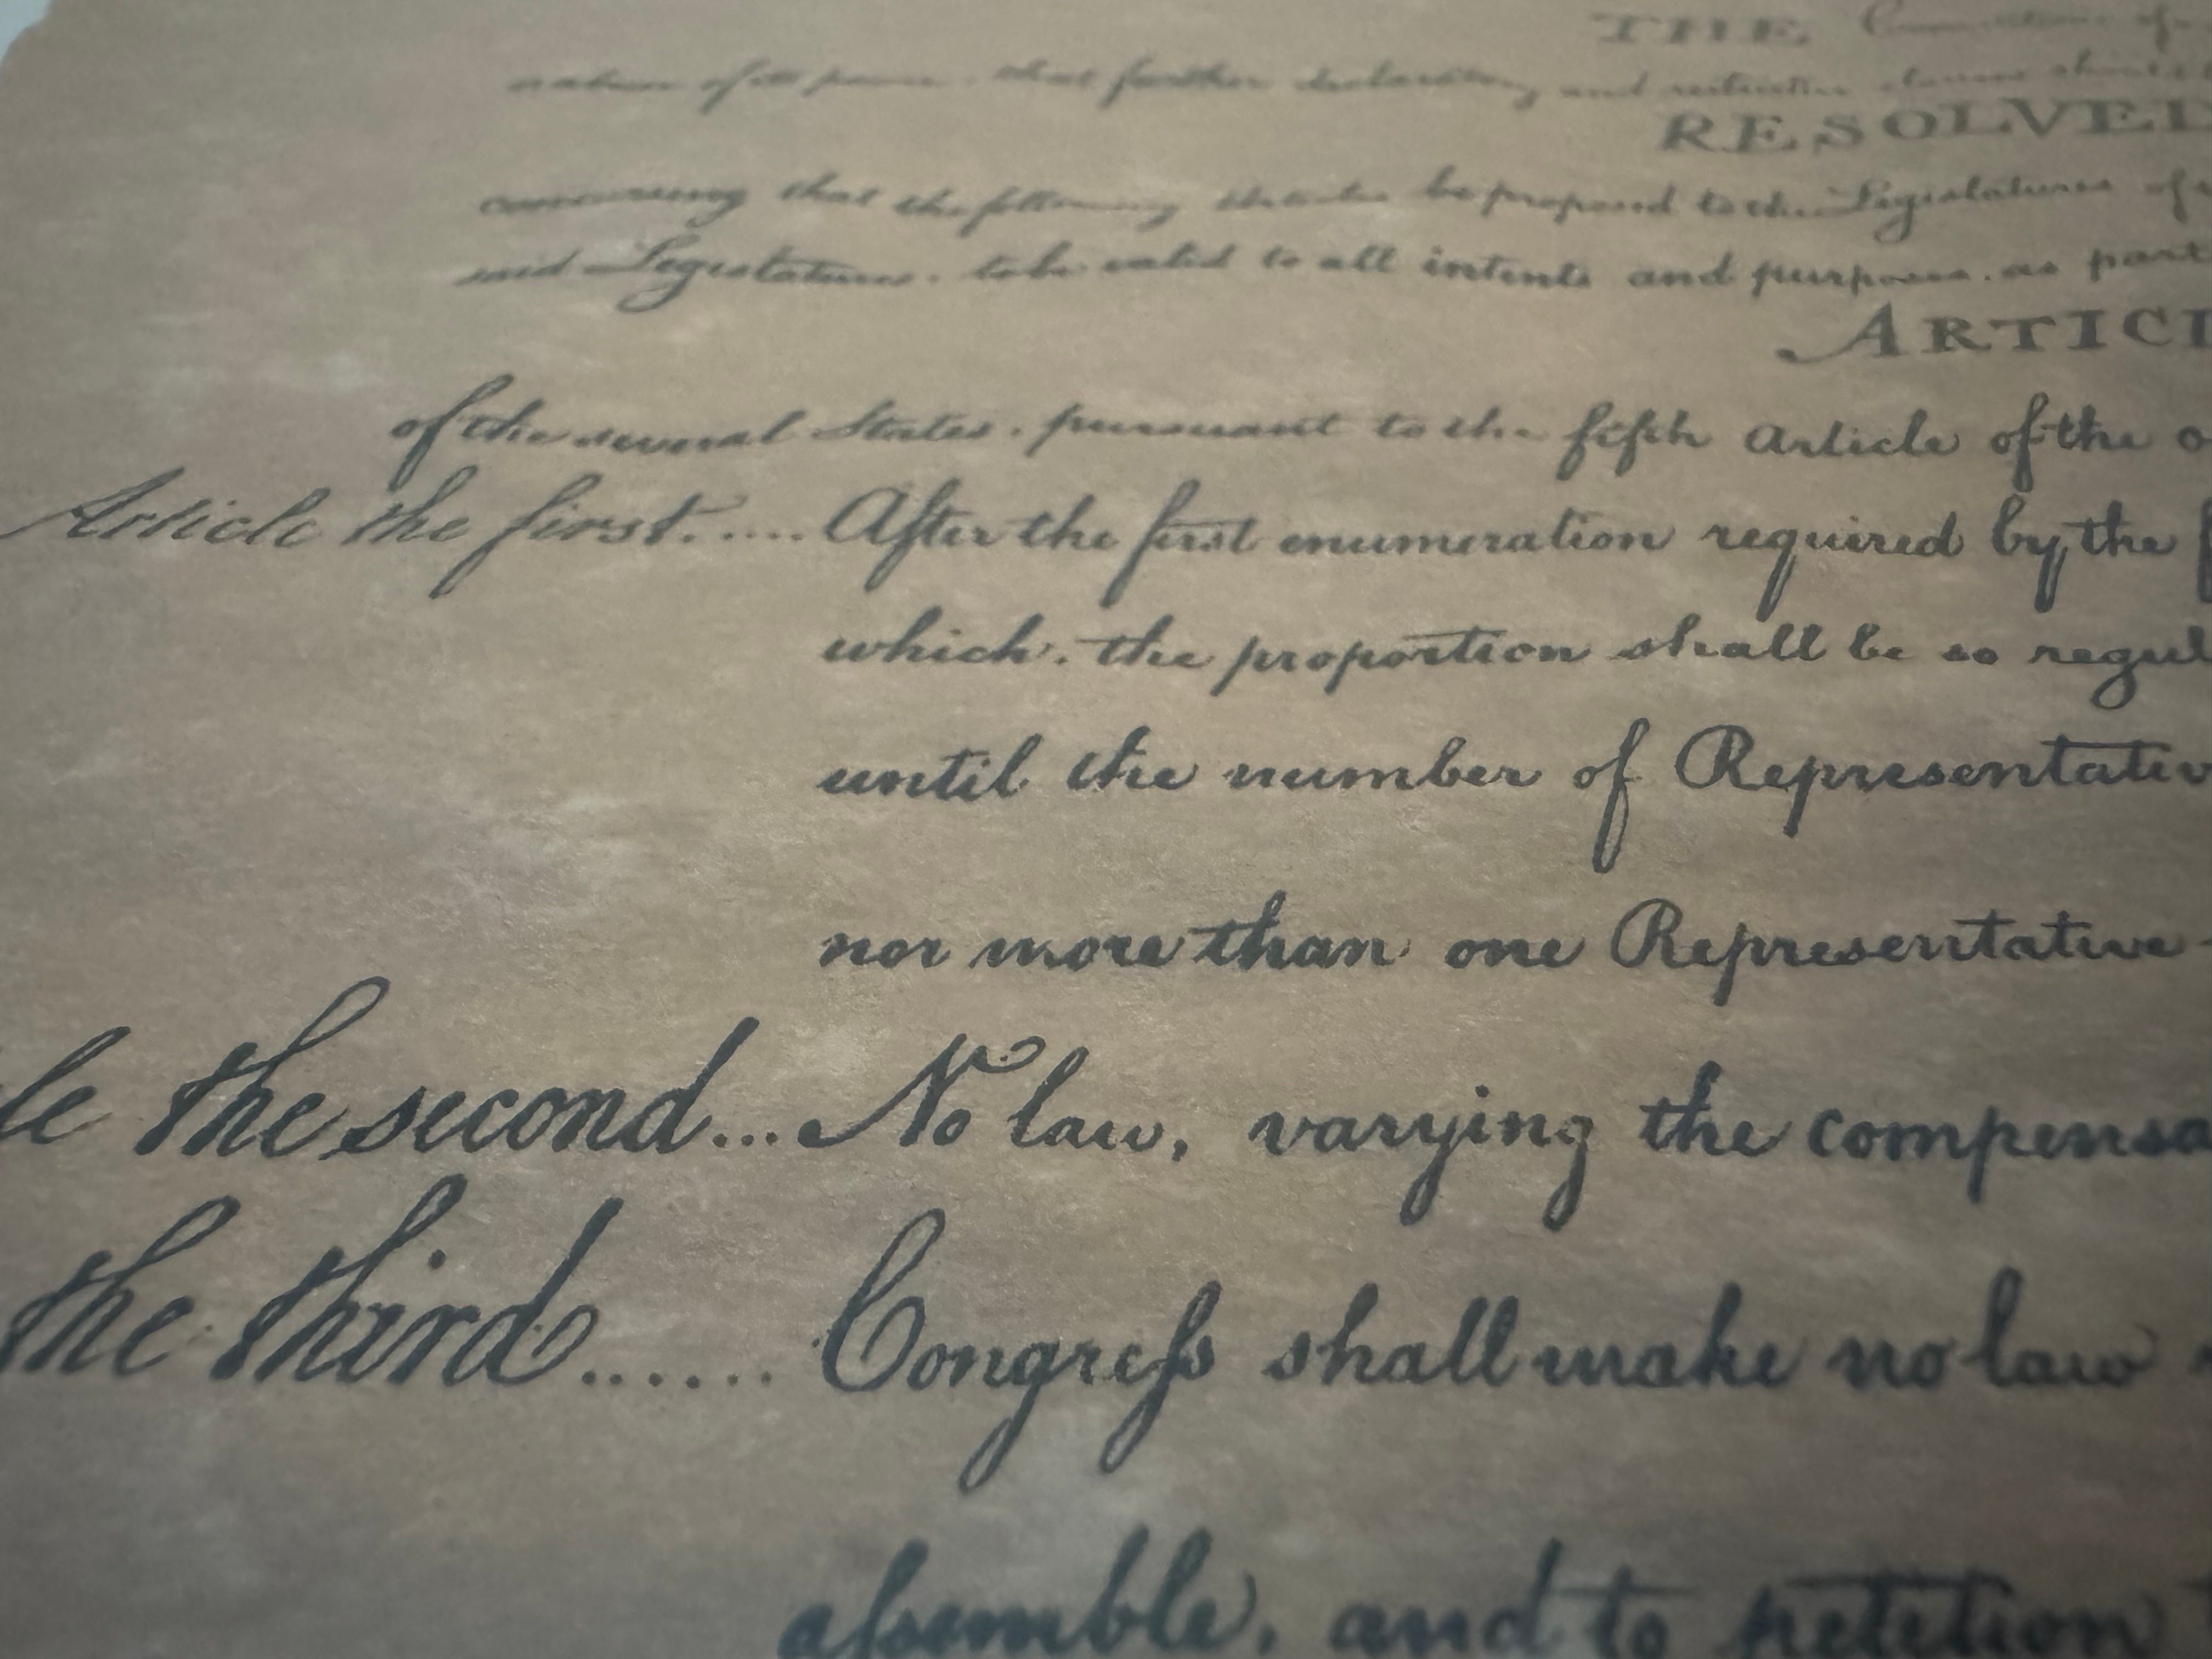 THE
that further declaratory and restrictive clauses
RESOLVED
concurring that the following Articles be proposed to the Legislatures of
said Legislatures. to be valid to all intents and purposes. as part
ARTICL
of the several States. pursuant to the fifth Article of the o
Article the first...... After the first enumeration required by the f
which. the proportion shall be so regul
until the number of Representativ
nor more than one Representative
le the second... No law, varying the compensa
the third...... Congreſs shall make no law
aſsemble, and to petition